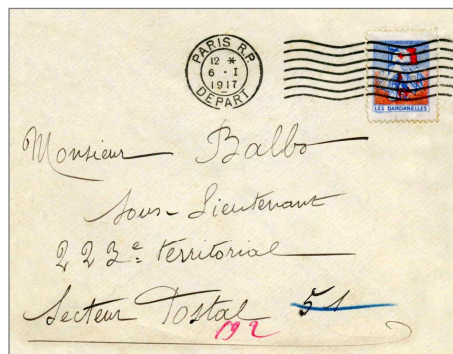 PARIS R.P.
12 *
6 · I
1917
DEPART
LES DARDANELLES
Monsieur Balbo
Sous-Lieutenant
223e territorial
Secteur Postal 51
192